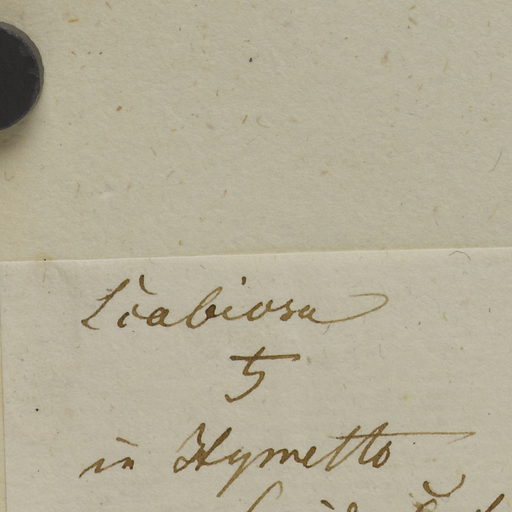 Scabiosa
5
in Hymetto